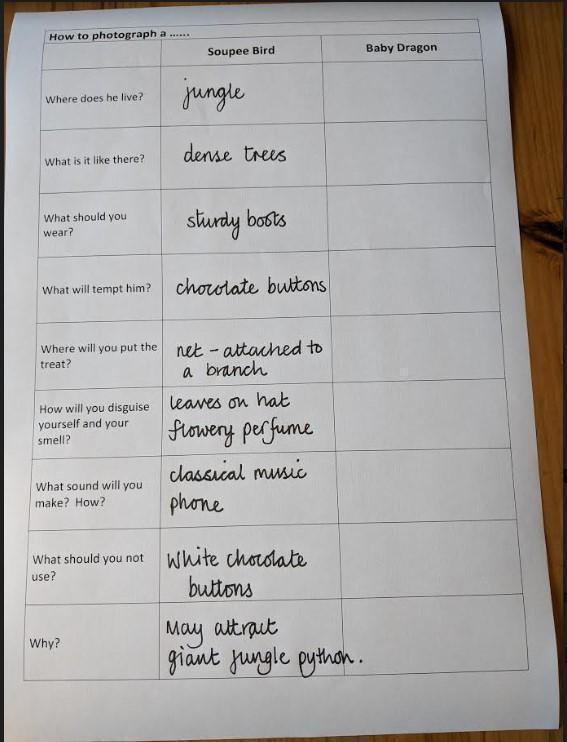 How to photograph a ......
Soupee Bird Baby Dragon
Where does he live? jungle
What is it like there? dense trees
What should you
wear?
sturdy boots
What will tempt him? chocolate buttons
Where will you put the
treat?
net – attached to
a branch
How will you disguise
yourself and your
smell?
leaves on hat
flowery perfume
What sound will you
make? How?
classical music
phone
What should you not
use?
White chocolate
buttons
Why?
May attract
giant jungle python.